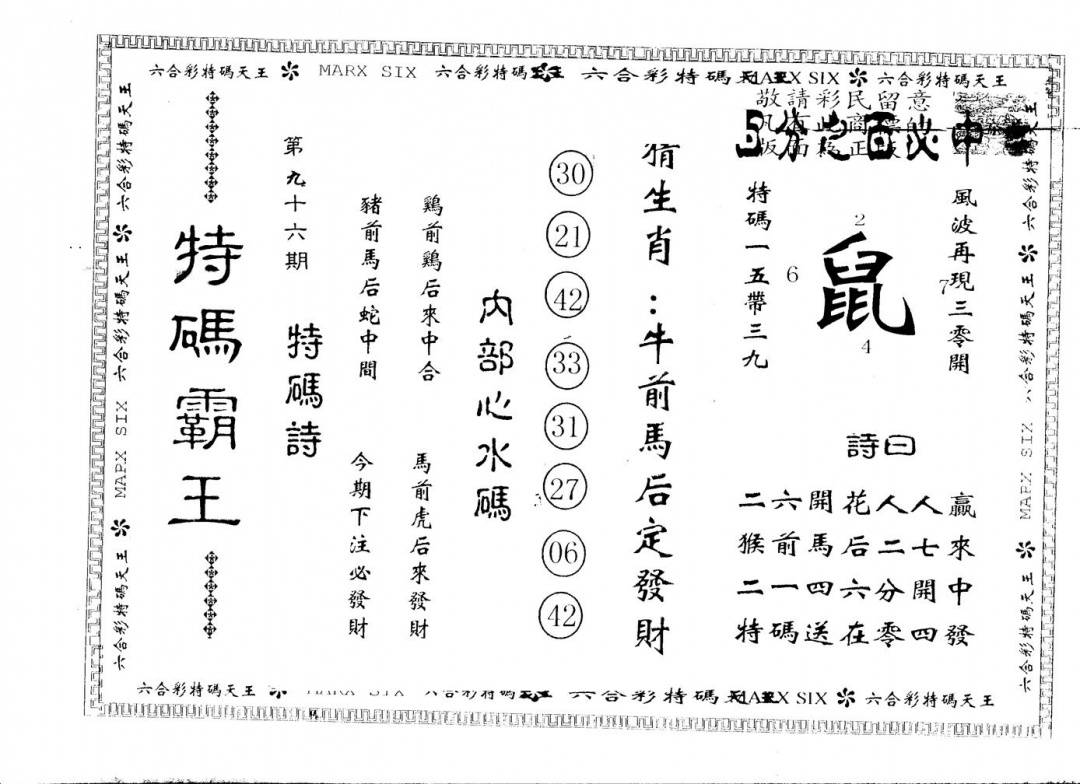 六合彩特碼天王 MARX SIX 六合彩特碼 六合彩特碼 MARX SIX 六合彩特碼天王
敬請彩民留意
分之百必中
風波再現三零開
2
6 鼠 7
4
特碼一五帶三九
詩曰
二六開花人人贏
猴前馬后二七來
二一四六分開中
特碼送在零四發
猜生肖：牛前馬后定發財
30
21
42
33
31
27
06
42
內部心水碼
鷄前鷄后來中合
馬前虎后來發財
豬前馬后蛇中間
今期下注必發財
第九十六期
特碼詩
特碼霸王
六合彩特碼天王
六合彩特碼天王
MARX SIX
六合彩特碼天王
六合彩特碼天王
六合彩特碼天王
MARX SIX
六合彩特碼天王
六合彩特碼天王 MARX SIX 六合彩特碼 六合彩特碼 MARX SIX 六合彩特碼天王